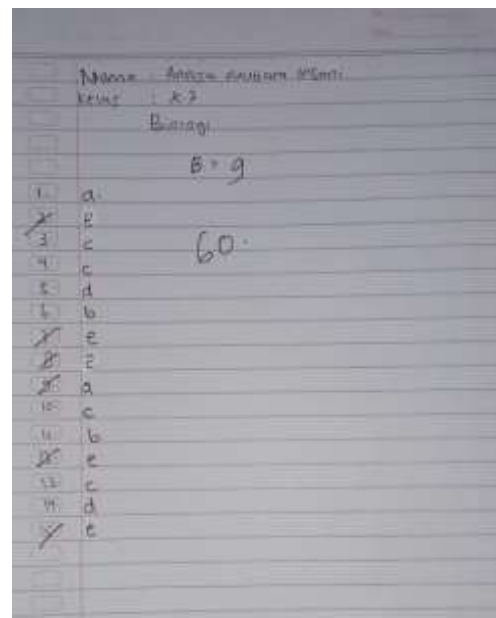 Nama :
Kelas : X.7
Biologi
B = 9
1. a.
2. e
3. c
60.
4. c
5. d
6. b
7. e
8. e
9. a
10. c
11. b
12. e
13. c
14. d
15. e